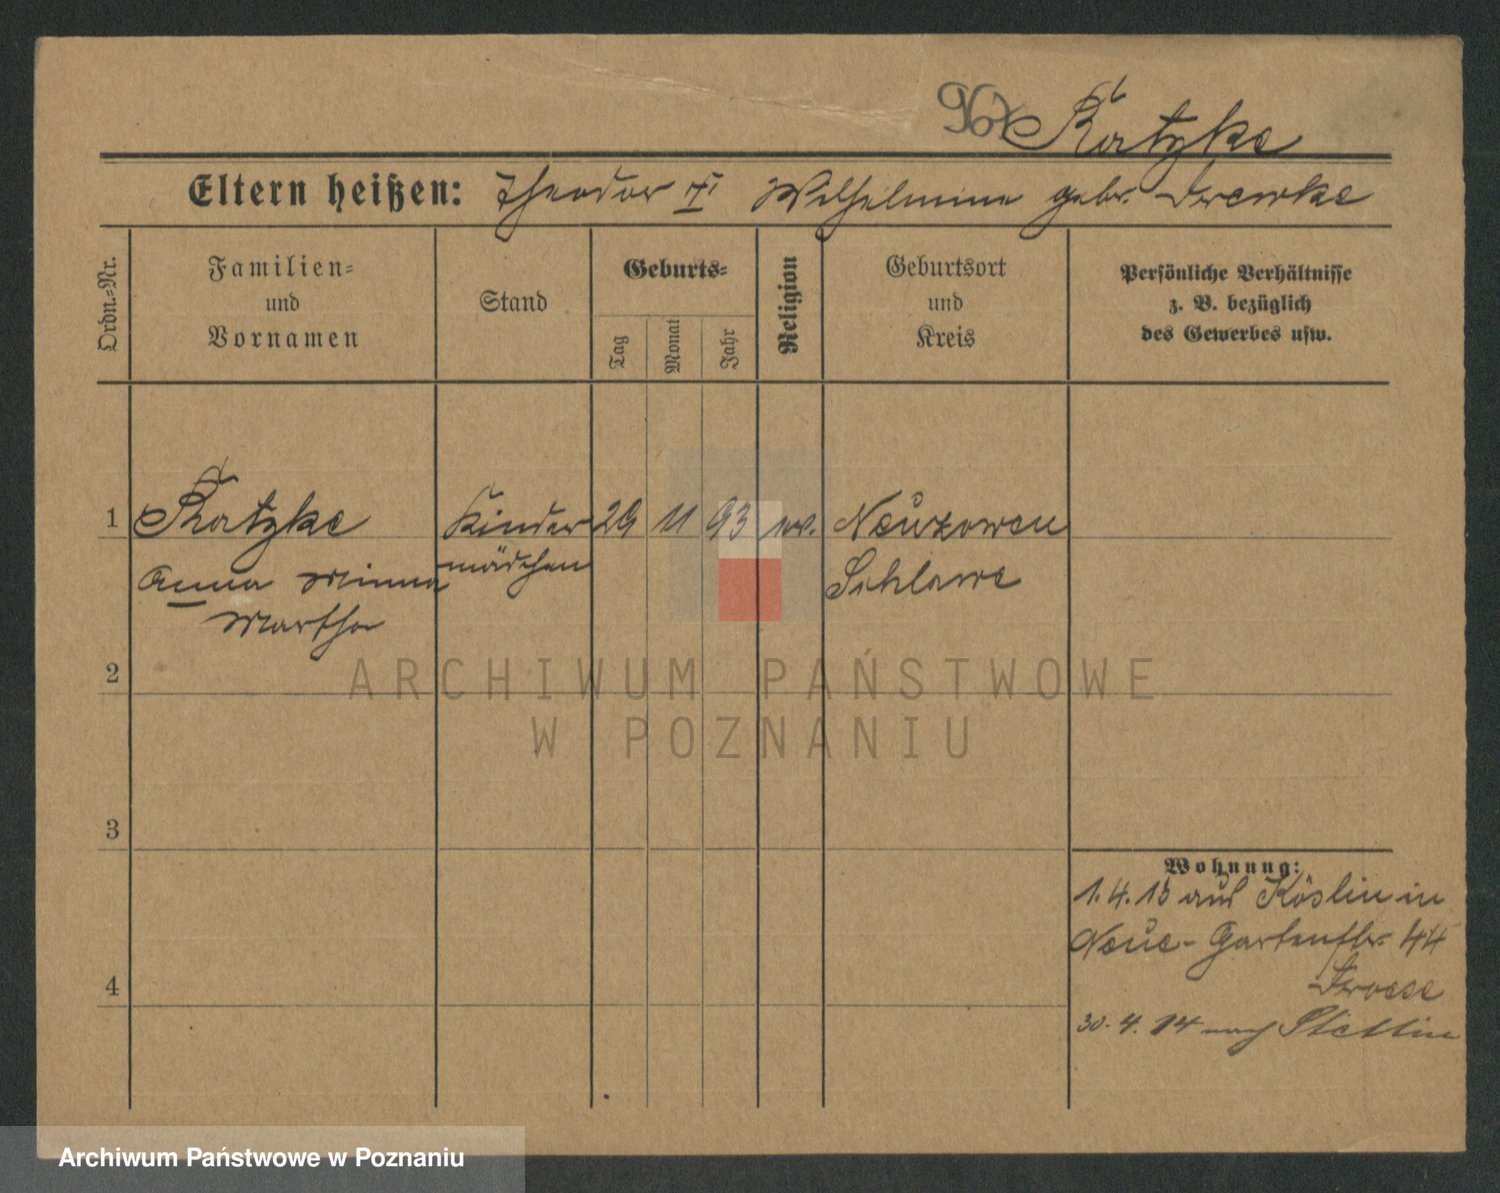 Ratzke
Eltern heißen: Theodor Wilhelmine geb.
Ordn.-Nr.
Familien=
und
Vornamen
Stand
Geburts=
Tag
Monat
Jahr
Religion
Geburtsort
und
Kreis
Persönliche Verhältnisse
z. B. bezüglich
des Gewerbes usw.
1 Ratzke Kinder 29 11 93 ev. Neuzowen
Anna Minna mädchen Schlawe
Martha
2
ARCHIWUM PAŃSTWOWE
W POZNANIU
3
4
Wohnung:
1.4.13 aus Köslin in
Neue-Gartenstr. 44
30.4.14 nach Stettin
Archiwum Państwowe w Poznaniu